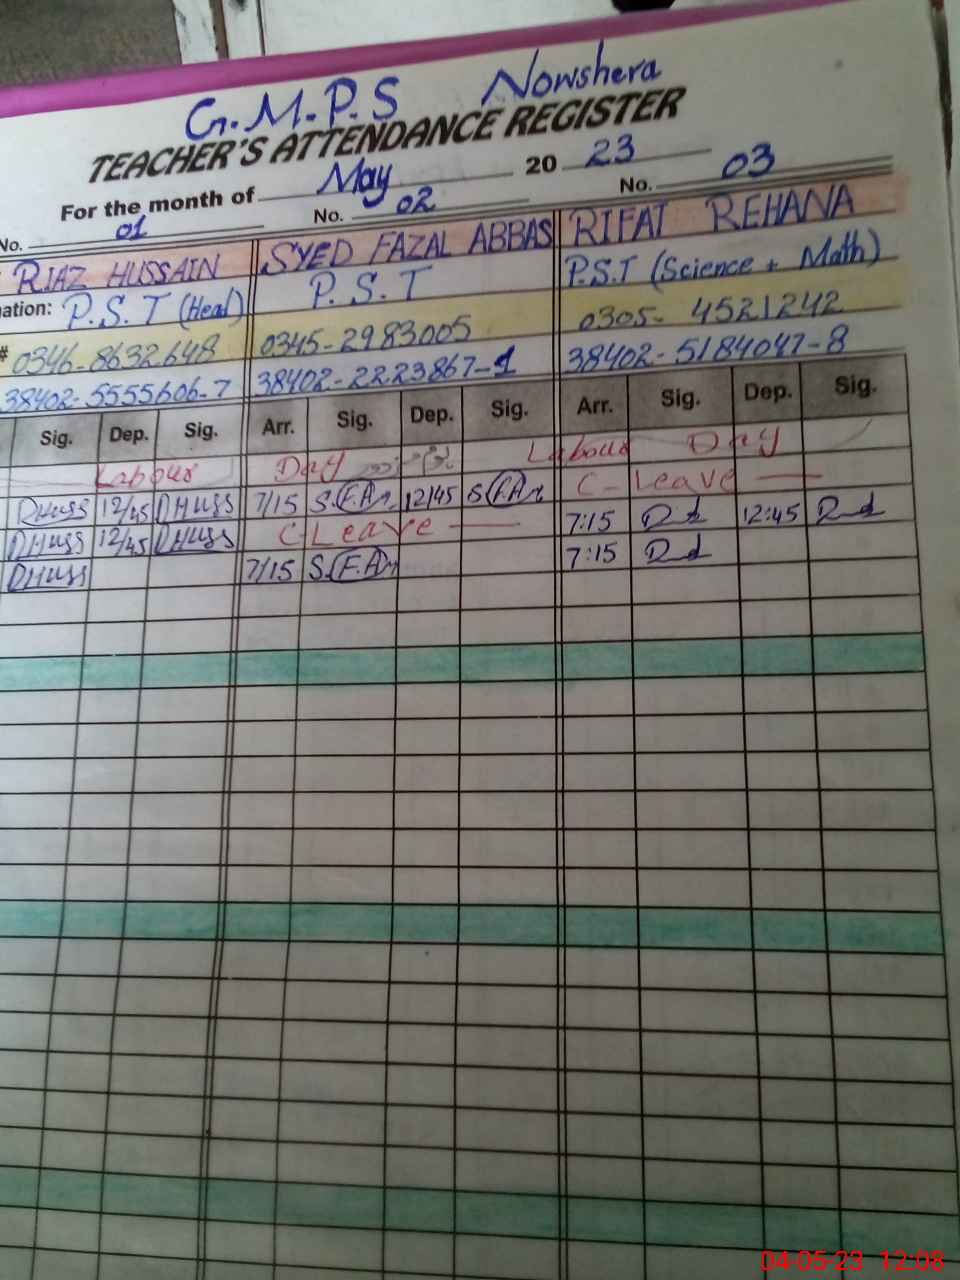 G.M.P.S Nowshera
TEACHER'S ATTENDANCE REGISTER
For the month of May 20 23
No. 01 No. 02 No. 03
RIAZ HUSSAIN SYED FAZAL ABBAS RIFAT REHANA
ation: P.S.T (Head) P.S.T P.S.T (Science + Math)
# 0346-8632648 0345-2983005 0305-4521242
38402-5555606-7 38402-2223867-1 38402-5184047-8
Sig. Dep. Sig. Arr. Sig. Dep. Sig. Arr. Sig. Dep. Sig.
Labour Day Labour Day
DHuss 12/45 DHuss 7/15 S.F.A 12/45 S.F.A C-Leave
DHuss 12/45 DHuss C-Leave 7:15 12:45
DHuss 7/15 S.F.A 7:15
04-05-23 12:08